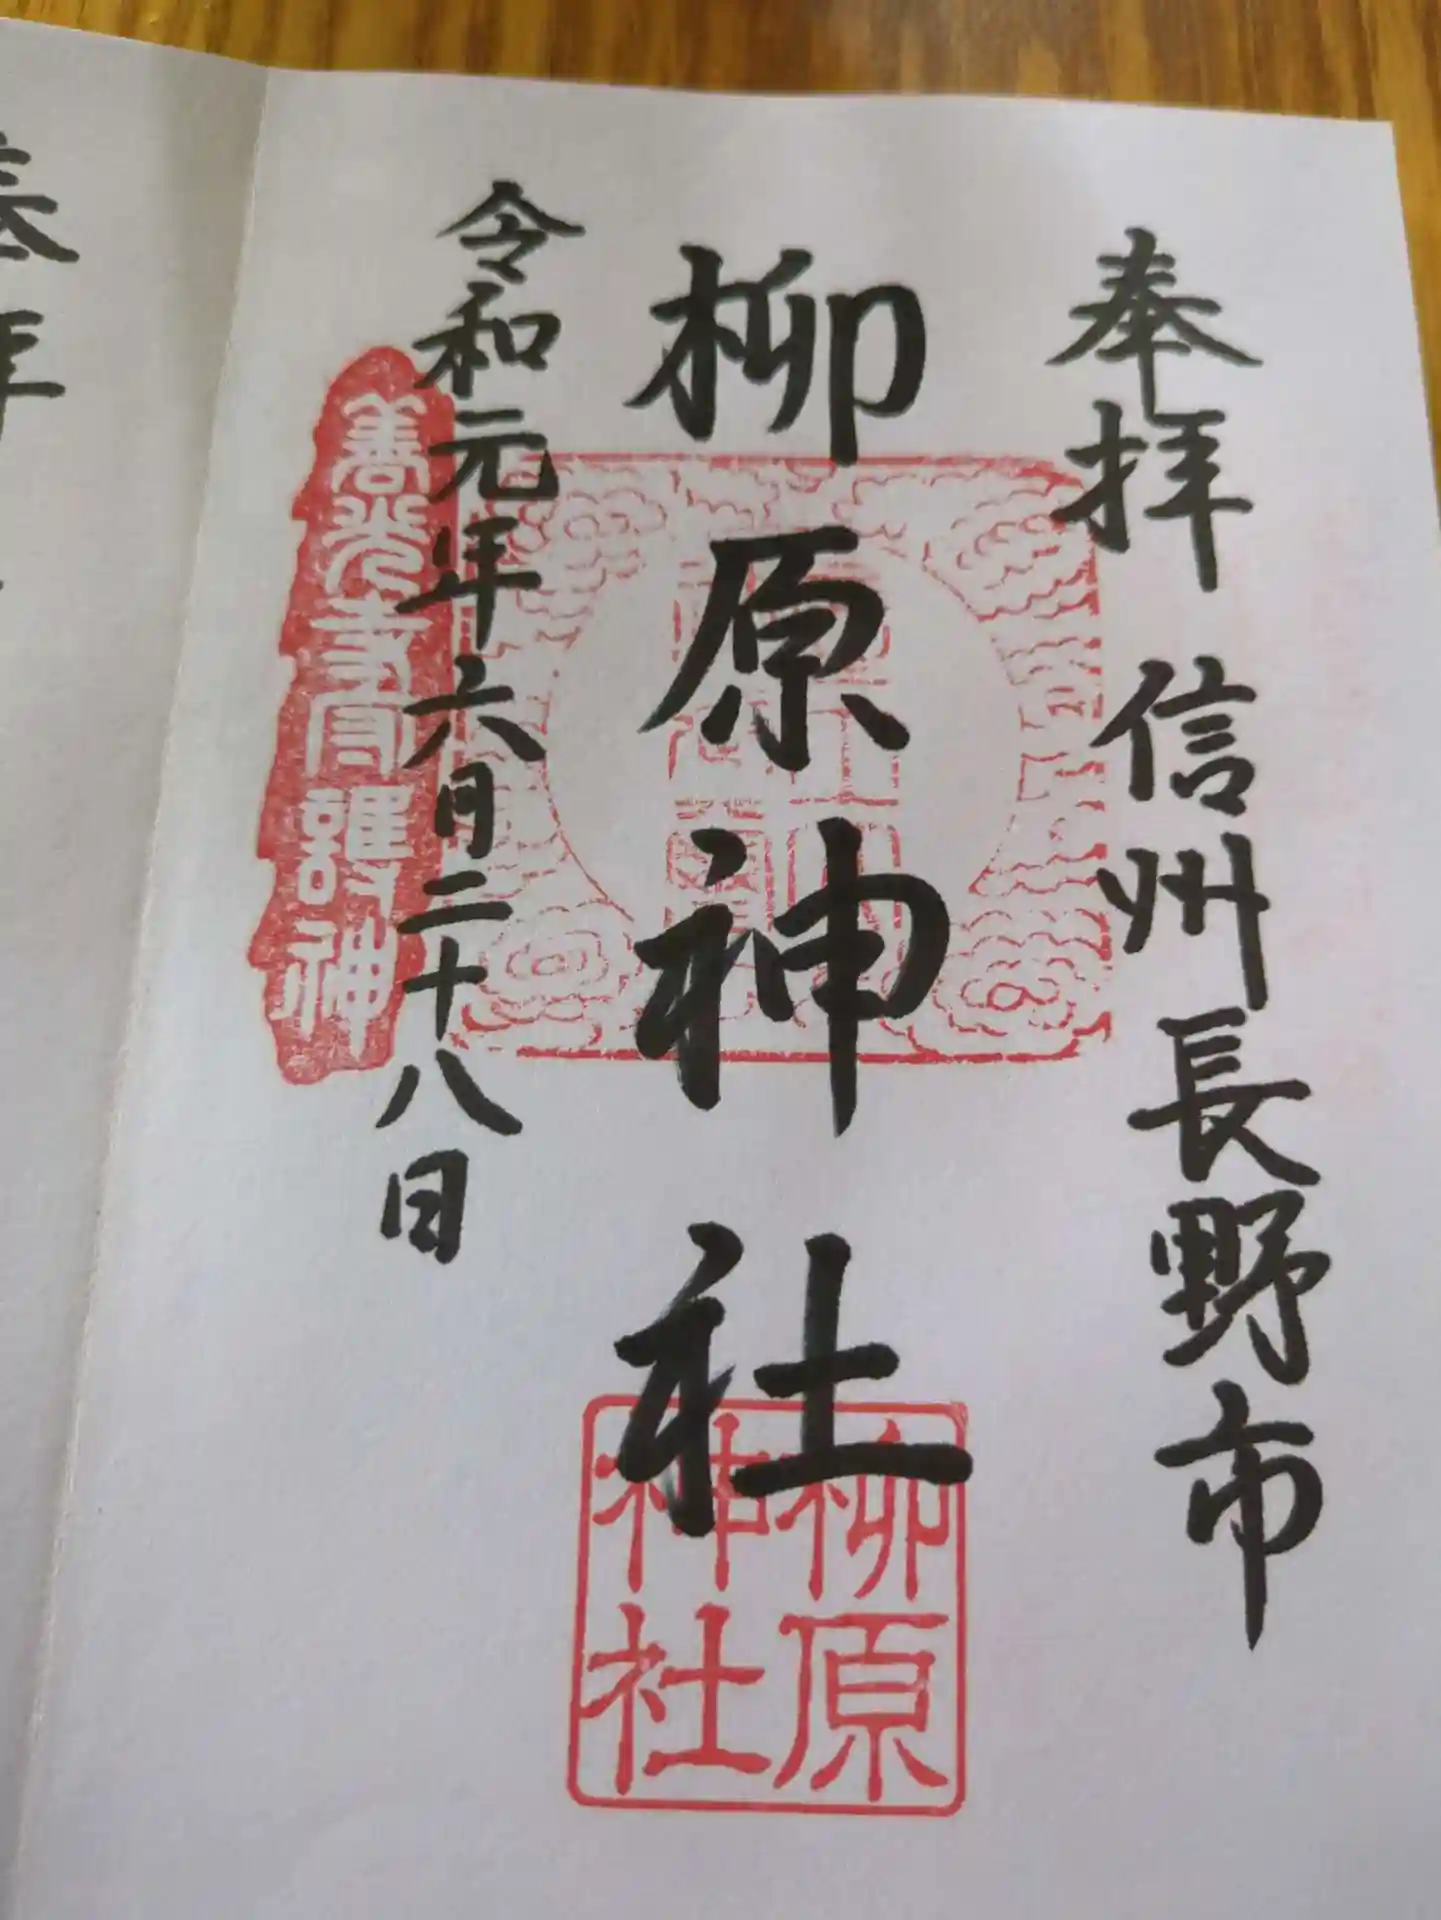 奉拝 信州長野市
柳原神社
令和元年六月二十八日
善光寺
護神
柳原
神社